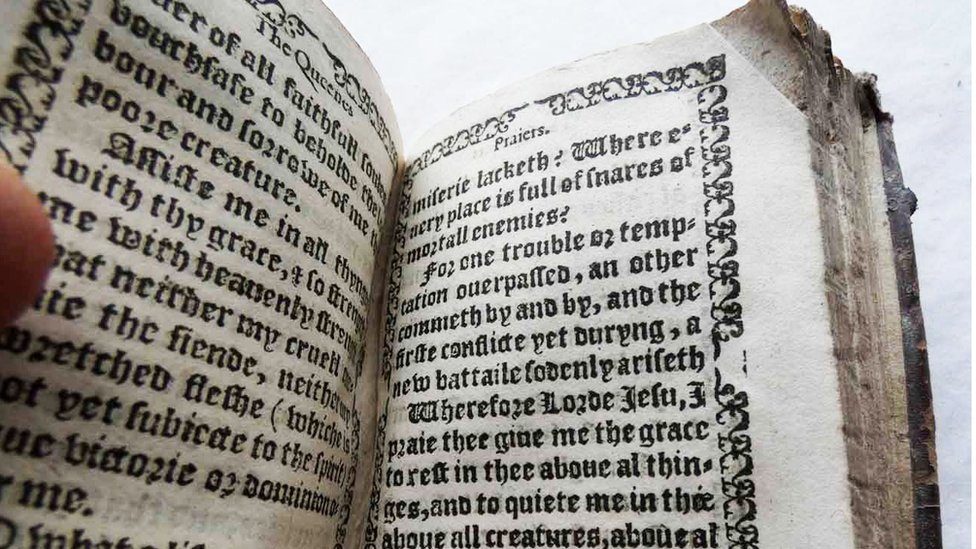 The Queenes
er of all faithfull soules
vouchsafe to beholde the
bour and sorrowe of me
poore creature.
Assiste me in all thyn
with thy grace, & so stren
me with heauenly stren
hat neither my cruell
the fiende, neither
wretched fleshe (whiche is
ot yet subiecte to the spirit
victorie or dominion
me.
what
Praiers.
miserie lacketh? Where e-
uery place is full of snares of
mortall enemies?
For one trouble or temp-
tation ouerpassed, an other
commeth by and by, and the
firste conflicte yet duryng, a
new battaile sodenly ariseth
Wherefore Lorde Jesu, I
praie thee giue me the grace
to rest in thee aboue al thin-
ges, and to quiete me in thee
aboue all creatures, aboue al